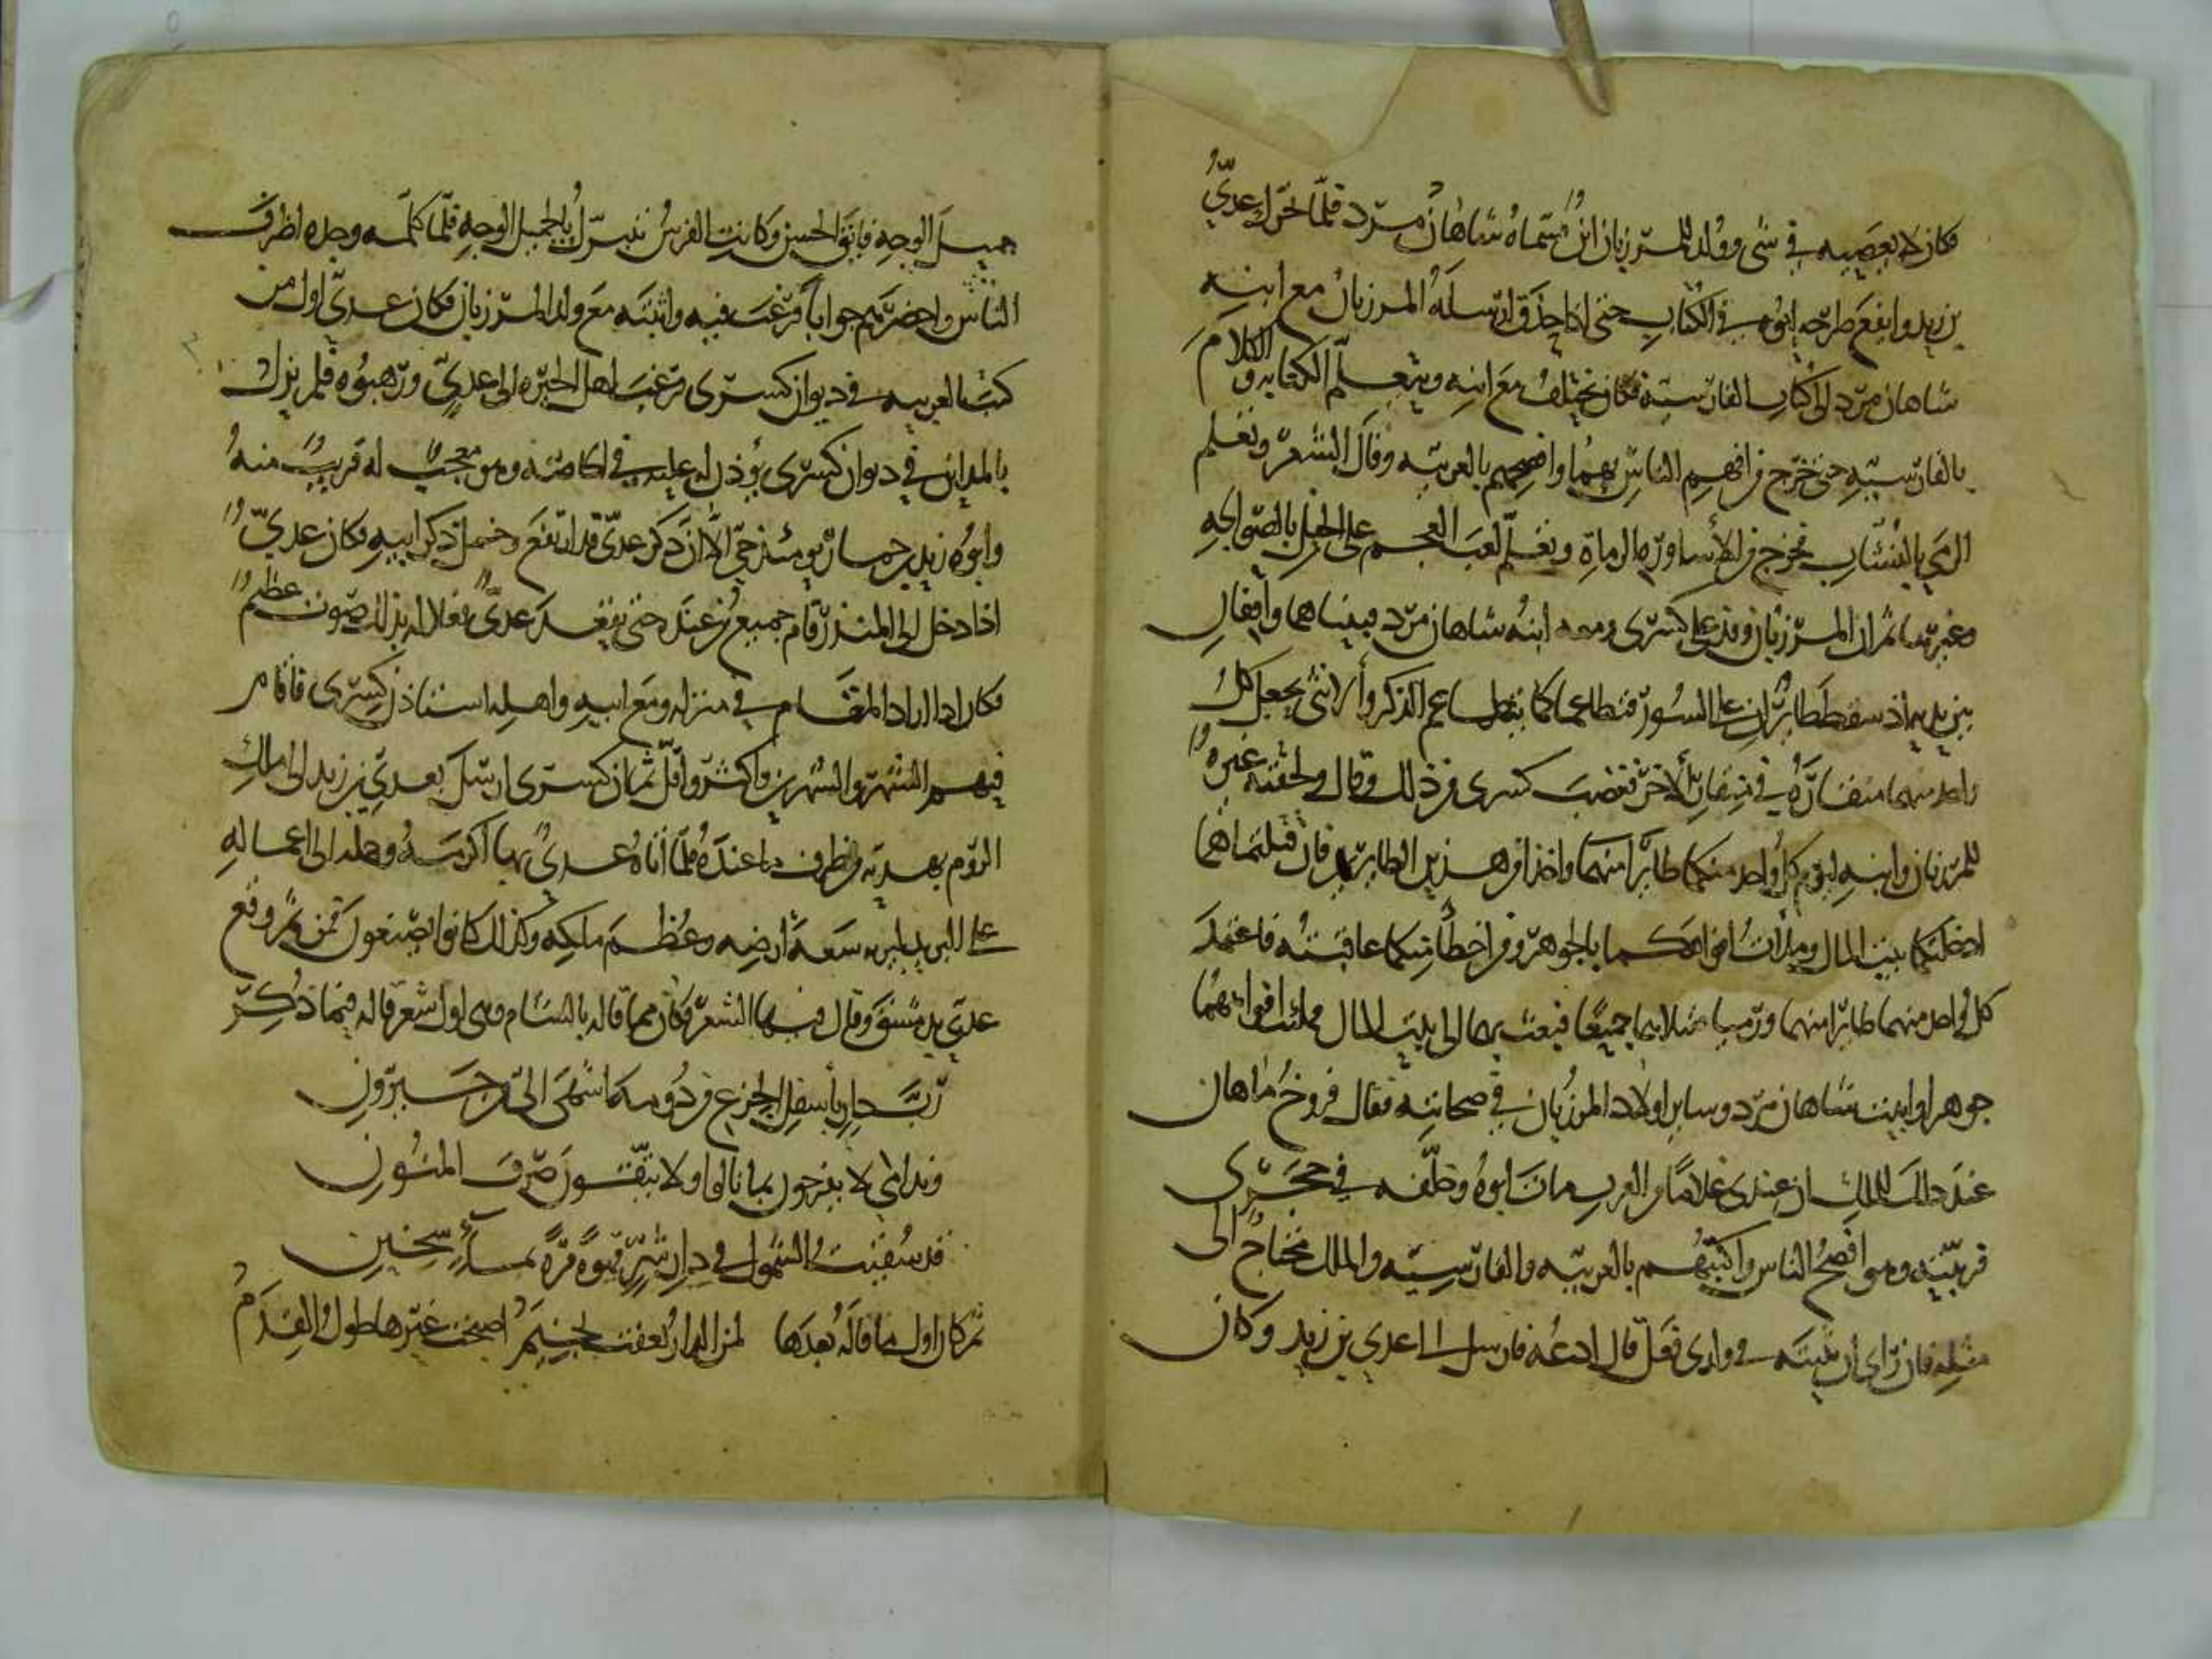 فكان لا يعصيه في شي وولد للمرزبان ابنٌ سمّاه شاهان مرد فلمّا تحرّك عديّ
بن زيد وايفع طرحه ابوه في الكتاب حتى اذا حذق ارسله المرزبان مع ابنه
شاهان مرد الى كتاب الفارسية فكان يختلف مع ابنه ويتعلّم الكتابه والكلام
بالفارسيّه حتى خرج من افهم الناس بهما وافصحهم بالعربيّه وقال الشعر وتعلم
الرمي بالنشّاب فخرج من الأساورة الرماة وتعلّم لعب العجم على الخيل بالصوالجه
وغيرها ثم ان المرزبان وفد على كسرى ومعه ابنه شاهان مرد فبينما هما واقفان
بين يديه اذ سقط طائران على السور فتطاعما كما يتطاعم الذكر والأنثى يجعل كلُّ
واحد منهما منقاره في منقار الآخر فغضب كسرى من ذلك وقال ولحقته غيره
للمرزبان وابنه ليرم كل واحد منكما طائرًا منهما واحذا من هذين الطايرين فان قتلتماهما
ادخلتكما بيت المال وملأت افواهكما بالجوهر ومن اخطأ منكما عاقبته فاعتمد
كل واحد منهما طايرًا منهما ورميا فقتلاهما جميعًا فبعث بهما الى بيت المال فملئت افواههما
جوهرا واثبت شاهان مرد وساير اولاد المرزبان في صحابته فقال فروخ ماهان
عند ذلك للملك ان عندى غلامًا من العرب مات ابوه وخلّفه في حجرى
فربّيته وهو افصح الناس واكتبهم بالعربيّه والفارسيّه والملك محتاج الى
مثله فان رأى ان يثبته في ولدى فعل قال ادعه فارسل الى عدي بن زيد وكان
جميل الوجه فايق الحسن وكانت الفرس تتبرّك بالجميل الوجه فلمّا كلّمه وجده اظرف
الناس واحضرهم جوابًا فرغب فيه واثبته مع ولد المرزبان فكان عديّ اول من
كتب العربيه في ديوان كسرى فرغب اهل الحيره الى عديّ ورهبوه فلم يزل
بالمداين في ديوان كسرى يؤذن له عليه في الخاصّه وهو معجب به قريب منه
وابوه زيد بن حماز يومئذ حيّ الا ان ذكر عديّ قد ارتفع وخمل ذكر ابيه فكان عديّ
اذا دخل الى المنذر قام جميع من عنده حتى يقعد عديّ فعلا له بذلك صوت عظيم
فكان اذا اراد المقام في منزله ومع ابيه واهله استاذن كسرى فاقام
فيهم الشهر والشهرين واكثر واقلّ ثم ان كسرى ارسل بعديّ بن زيد الى ملك
الروم بهديّه من طرف ما عنده فلمّا اتاه عديّ بها اكرمه وحمله الى اعماله
على البريد ليريه سعة ارضه وعظم ملكه وكذلك كانوا يصنعون فمن ثمّ وقع
عديّ بدمشق وقال فيها الشعر فكان مما قاله بالشام وهي اول شعر قاله فيما ذكر
ربّ دار بأسفل الجزع من دومه اشهى الىّ من جيرون
وندامى لا يفرحون بما نالوا ولا يتّقون صرف المنون
قد سقيت الشمول في دار بشر قهوة مرة بماء سخين
ثم كان اول ما قاله بعدها لمن الدار تعفّت بخيم اصبحت غيّرها طول القدم